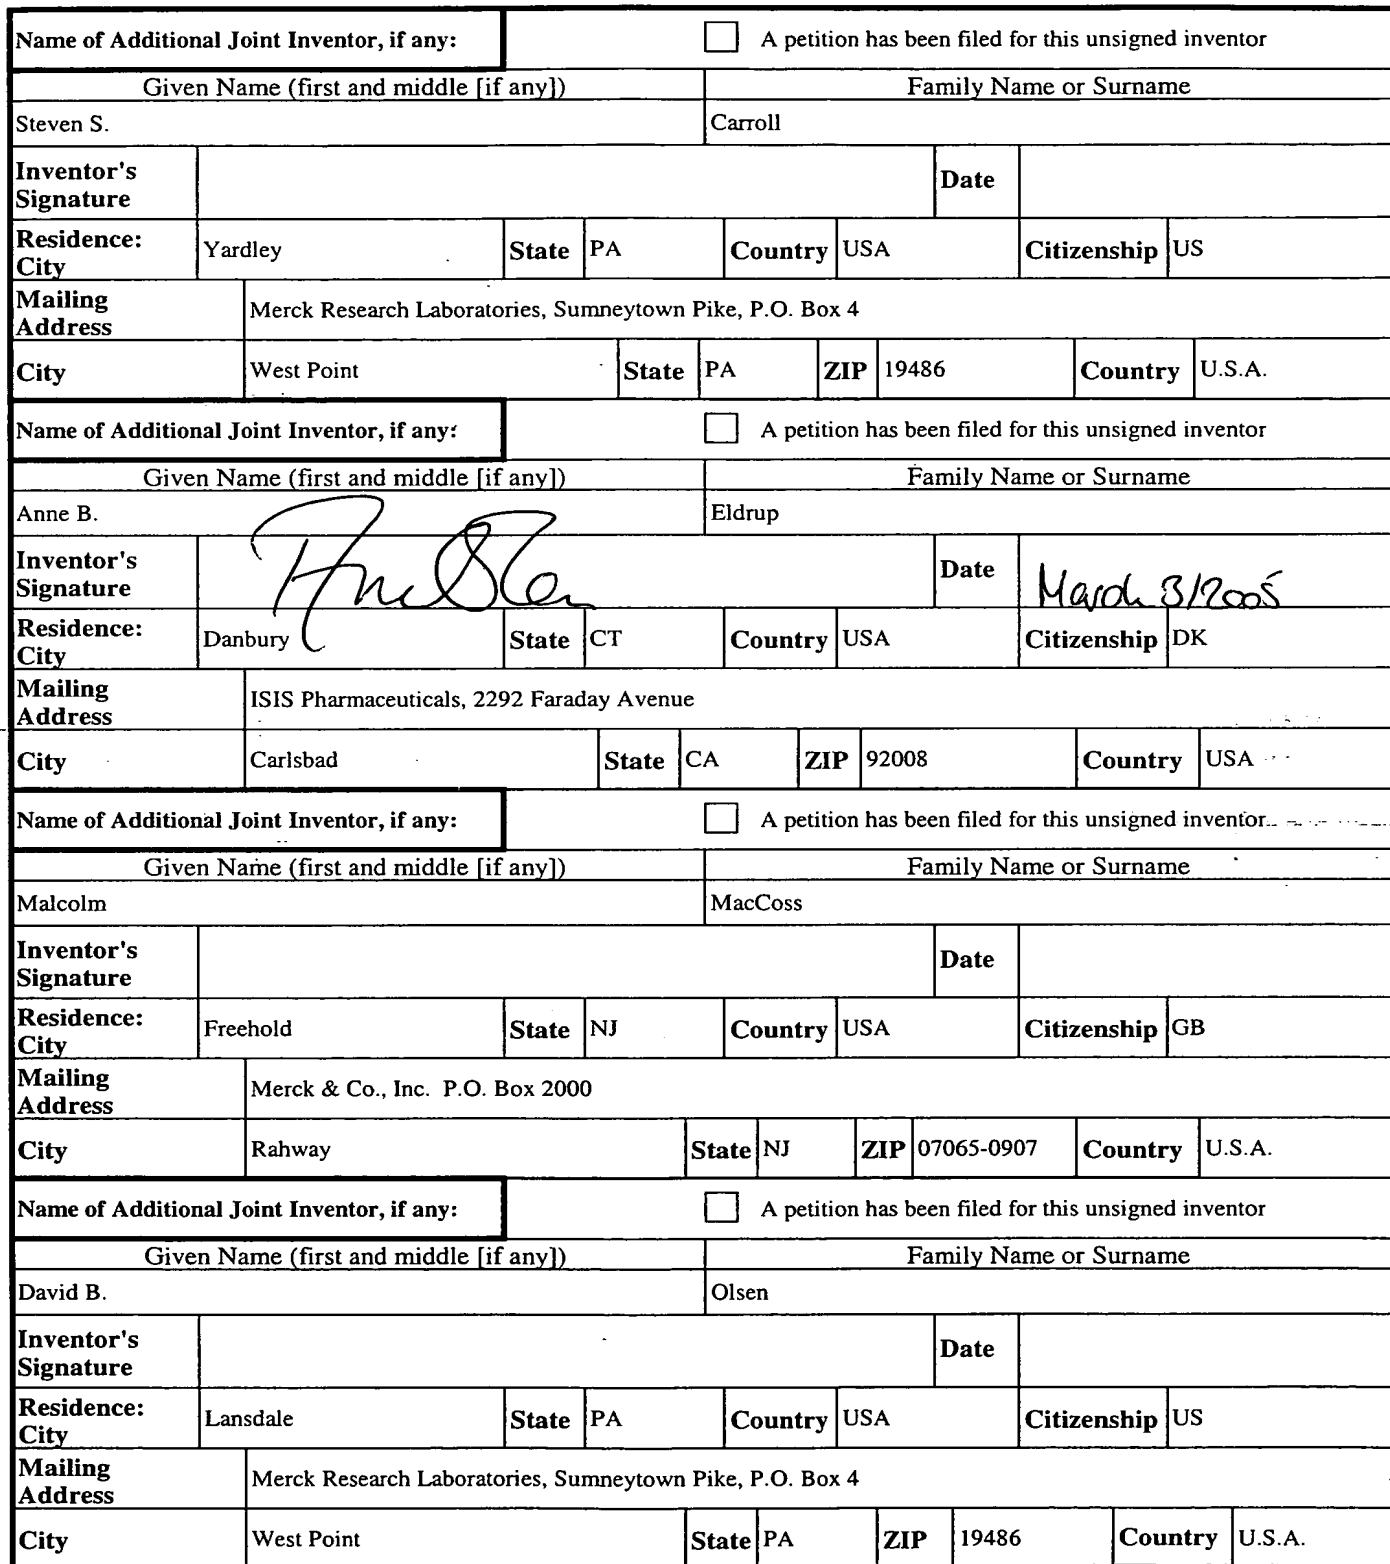 Name of Additional Joint Inventor, if any: A petition has been filed for this unsigned inventor
Given Name (first and middle [if any]) Family Name or Surname
Steven S. Carroll
Inventor's Signature Date
Residence: City Yardley State PA Country USA Citizenship US
Mailing Address Merck Research Laboratories, Sumneytown Pike, P.O. Box 4
City West Point State PA ZIP 19486 Country U.S.A.
Name of Additional Joint Inventor, if any: A petition has been filed for this unsigned inventor
Given Name (first and middle [if any]) Family Name or Surname
Anne B. Eldrup
Inventor's Signature Date March 3/2005
Residence: City Danbury State CT Country USA Citizenship DK
Mailing Address ISIS Pharmaceuticals, 2292 Faraday Avenue
City Carlsbad State CA ZIP 92008 Country USA
Name of Additional Joint Inventor, if any: A petition has been filed for this unsigned inventor
Given Name (first and middle [if any]) Family Name or Surname
Malcolm MacCoss
Inventor's Signature Date
Residence: City Freehold State NJ Country USA Citizenship GB
Mailing Address Merck & Co., Inc. P.O. Box 2000
City Rahway State NJ ZIP 07065-0907 Country U.S.A.
Name of Additional Joint Inventor, if any: A petition has been filed for this unsigned inventor
Given Name (first and middle [if any]) Family Name or Surname
David B. Olsen
Inventor's Signature Date
Residence: City Lansdale State PA Country USA Citizenship US
Mailing Address Merck Research Laboratories, Sumneytown Pike, P.O. Box 4
City West Point State PA ZIP 19486 Country U.S.A.